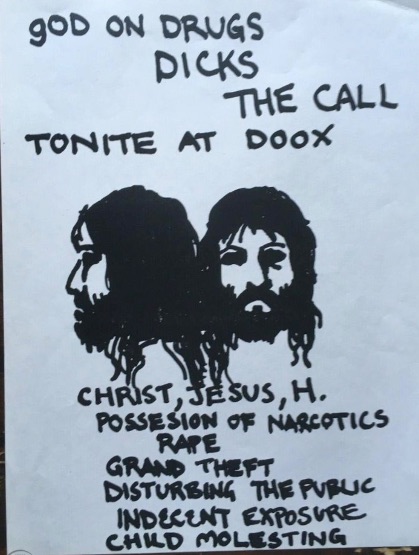 gOD ON DRUGS
DICKS
THE CALL
TONITE AT DOOX
CHRIST, JESUS, H.
POSSESION OF NARCOTICS
RAPE
GRAND THEFT
DISTURBING THE PUBLIC
INDECENT EXPOSURE
CHILD MOLESTING